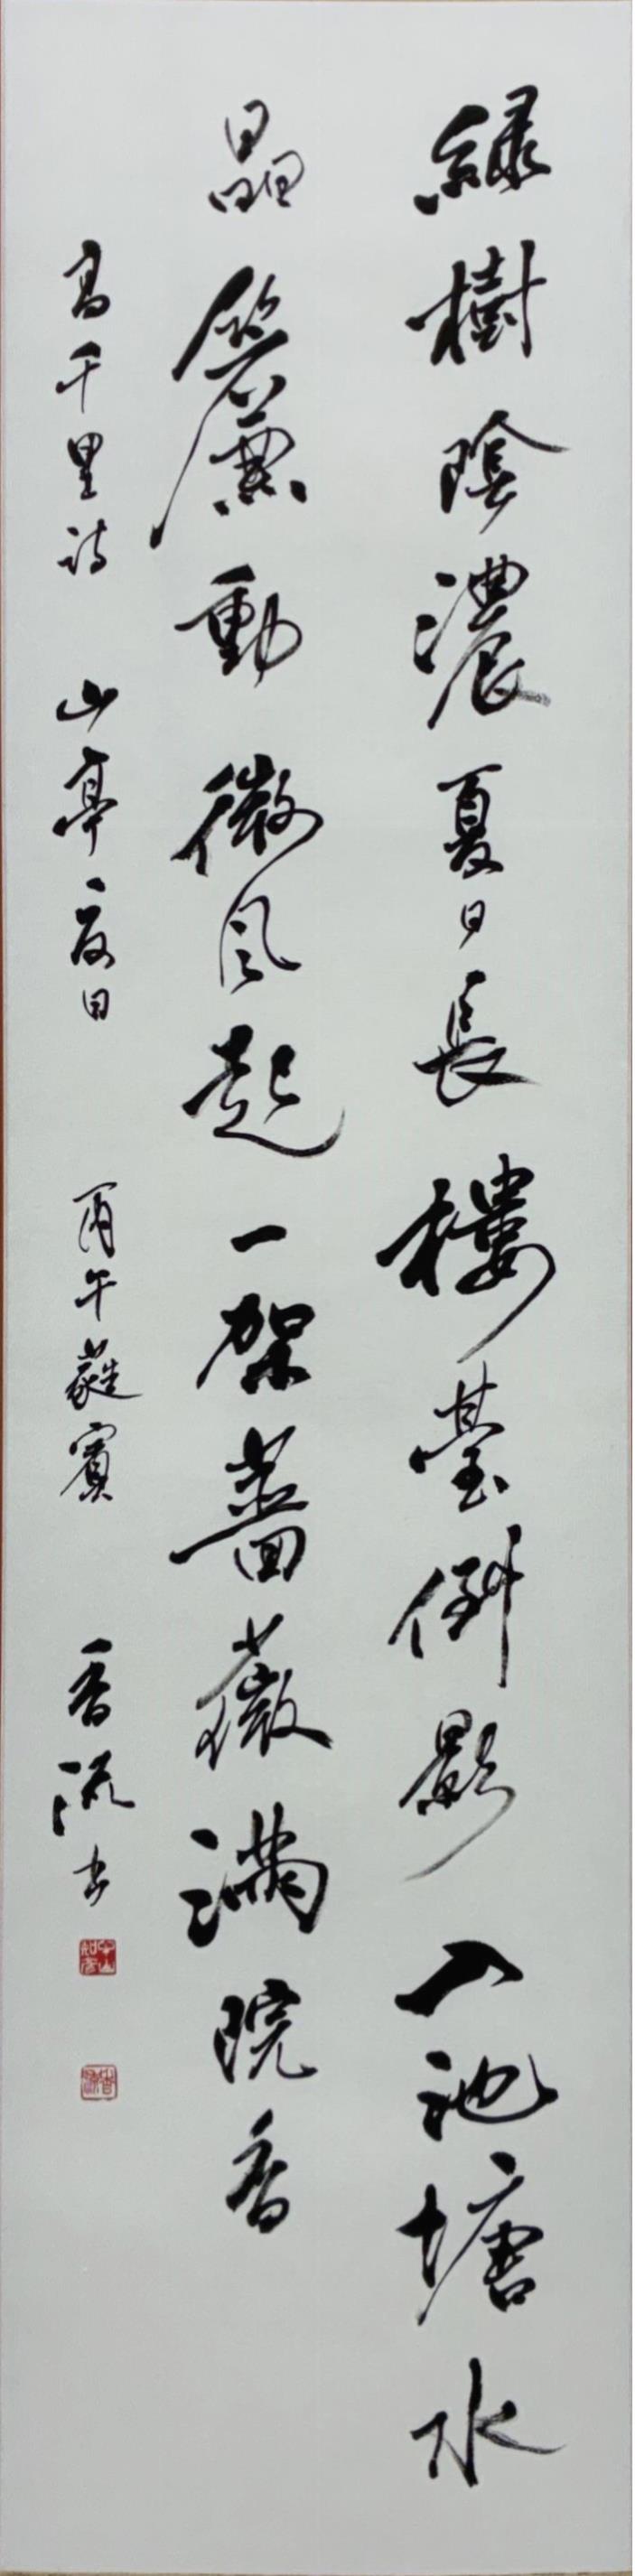 綠樹陰濃夏日長樓臺倒影入池塘水
晶簾動微風起一架薔薇滿院香
高千里詩 山亭夏日 丙午蕤賓 香流书